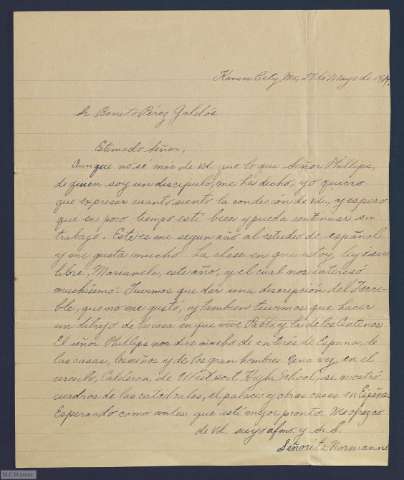 Kansas City, Mo, 27 de Mayo de 19
Sr Benito Pérez Galdós
Estimado Señor,
Aunque no se mas de vd. que lo que Señor Phillips,
de quien soy un discipulo, me ha decho, yo quiero
que expresar cuanto siento la condecion de vd., y espero
que en poco tiempo esté bien y pueda continuar su
trabajo. Este es me segun año al estudeo de español
y me gusta mucho. La clase en que estoy, leyó su
libro, Marianela, este año, y el cual nos interesó
muchisimo. Tuvimos que dar una discripcion del
que no me gustó, y tambien tuvimos que hacer
un dibujo de la casa en que vivi
El señor Phillips nos dice mucho de interés de Espana, de
las casas, los niños y de los gran hombres. Una vez, en el
circulo, Calderon, de Westport High School, se mostró
cuadros de las catedrales, el palacio y otras casas en España.
Esperando como antes que esté mejor pronto. Me ofrezco
de vd. suyo afmo. y S. S.
Señorita E. Normann